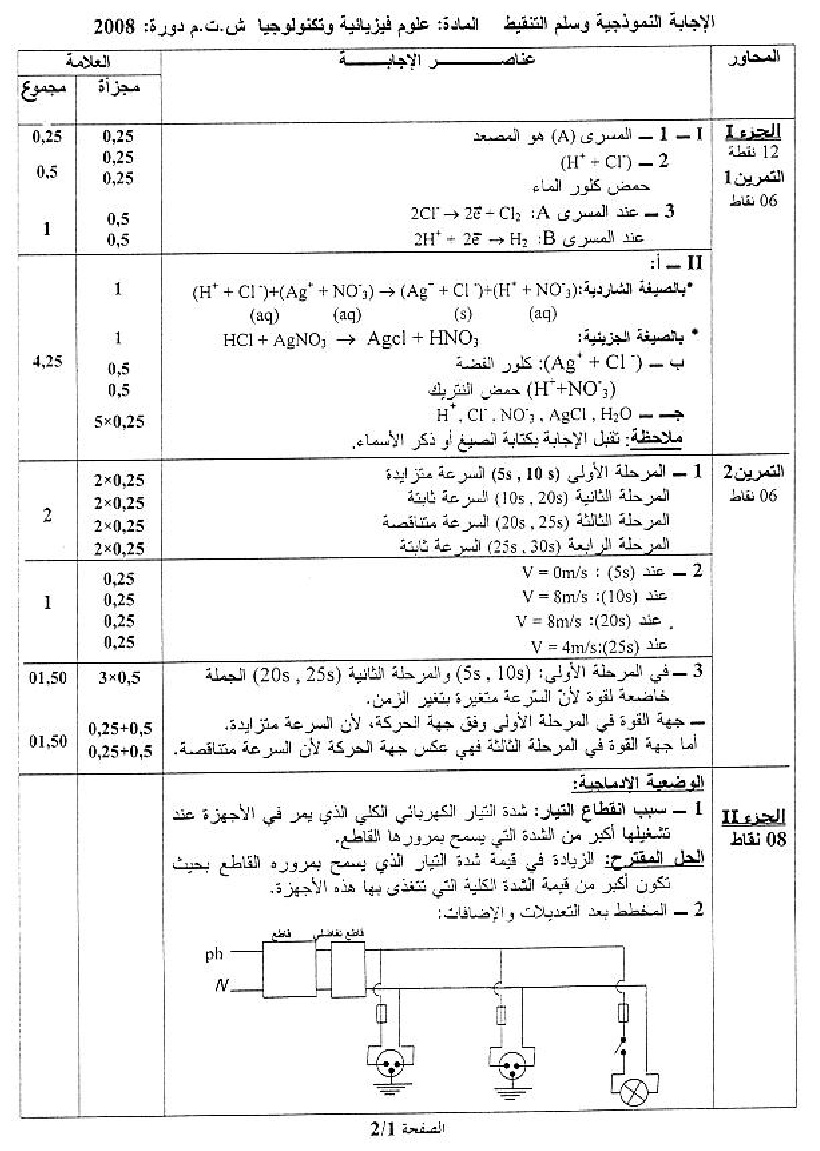 الإجابة النموذجية وسلم التنقيط المادة: علوم فيزيائية وتكنولوجيا ش.ت.م دورة: 2008
المحاور
عناصر الإجابة
العلامة
مجزأة
مجموع
الجزء I
12 نقطة
التمرين1
06 نقاط
I – 1 – المسرى (A) هو المصعد
0,25
0,25
2 – (H⁺ + Cl⁻)
0,25
حمض كلور الماء
0,25
0,5
3 – عند المسرى A: 2Cl⁻ → 2e̅ + Cl₂
0,5
عند المسرى B: 2H⁺ + 2e̅ → H₂
0,5
1
II – أ:
•بالصيغة الشاردية: (H⁺ + Cl⁻)+(Ag⁺ + NO⁻₃) → (Ag⁺ + Cl⁻)+(H⁺ + NO⁻₃)
1
(aq) (aq) (s) (aq)
• بالصيغة الجزيئية: HCl + AgNO₃ → Agcl + HNO₃
1
ب – (Ag⁺ + Cl⁻): كلور الفضة
0,5
4,25
(H⁺+NO⁻₃) حمض النتريك
0,5
جـ – H⁺, Cl⁻, NO⁻₃, AgCl, H₂O
5×0,25
ملاحظة: تقبل الإجابة بكتابة الصيغ أو ذكر الأسماء.
التمرين2
06 نقاط
1 – المرحلة الأولى (5s , 10s) السرعة متزايدة
2×0,25
المرحلة الثانية (10s , 20s) السرعة ثابتة
2×0,25
المرحلة الثالثة (20s , 25s) السرعة متناقصة
2×0,25
المرحلة الرابعة (25s , 30s) السرعة ثابتة
2×0,25
2
2 – عند (5s) : V = 0m/s
0,25
عند (10s): V = 8m/s
0,25
عند (20s): V = 8m/s
0,25
عند (25s): V = 4m/s
0,25
1
3 – في المرحلة الأولى: (5s , 10s) والمرحلة الثانية (20s , 25s) الجملة
3×0,5
01,50
خاضعة لقوة لأنّ السّرعة متغيرة بتغير الزمن.
– جهة القوة في المرحلة الأولى وفق جهة الحركة، لأن السرعة متزايدة،
0,25+0,5
أما جهة القوة في المرحلة الثالثة فهي عكس جهة الحركة لأن السرعة متناقصة.
0,25+0,5
01,50
الجزء II
08 نقاط
الوضعية الادماجية:
1 – سبب انقطاع التيار: شدة التيار الكهربائي الكلي الذي يمر في الأجهزة عند
تشغيلها أكبر من الشدة التي يسمح بمرورها القاطع.
الحل المقترح: الزيادة في قيمة شدة التيار الذي يسمح بمروره القاطع بحيث
تكون أكبر من قيمة الشدة الكلية التي تتغذى بها هذه الأجهزة.
2 – المخطط بعد التعديلات والإضافات:
قاطع تفاضلي
قاطع
ph
N
الصفحة 2/1